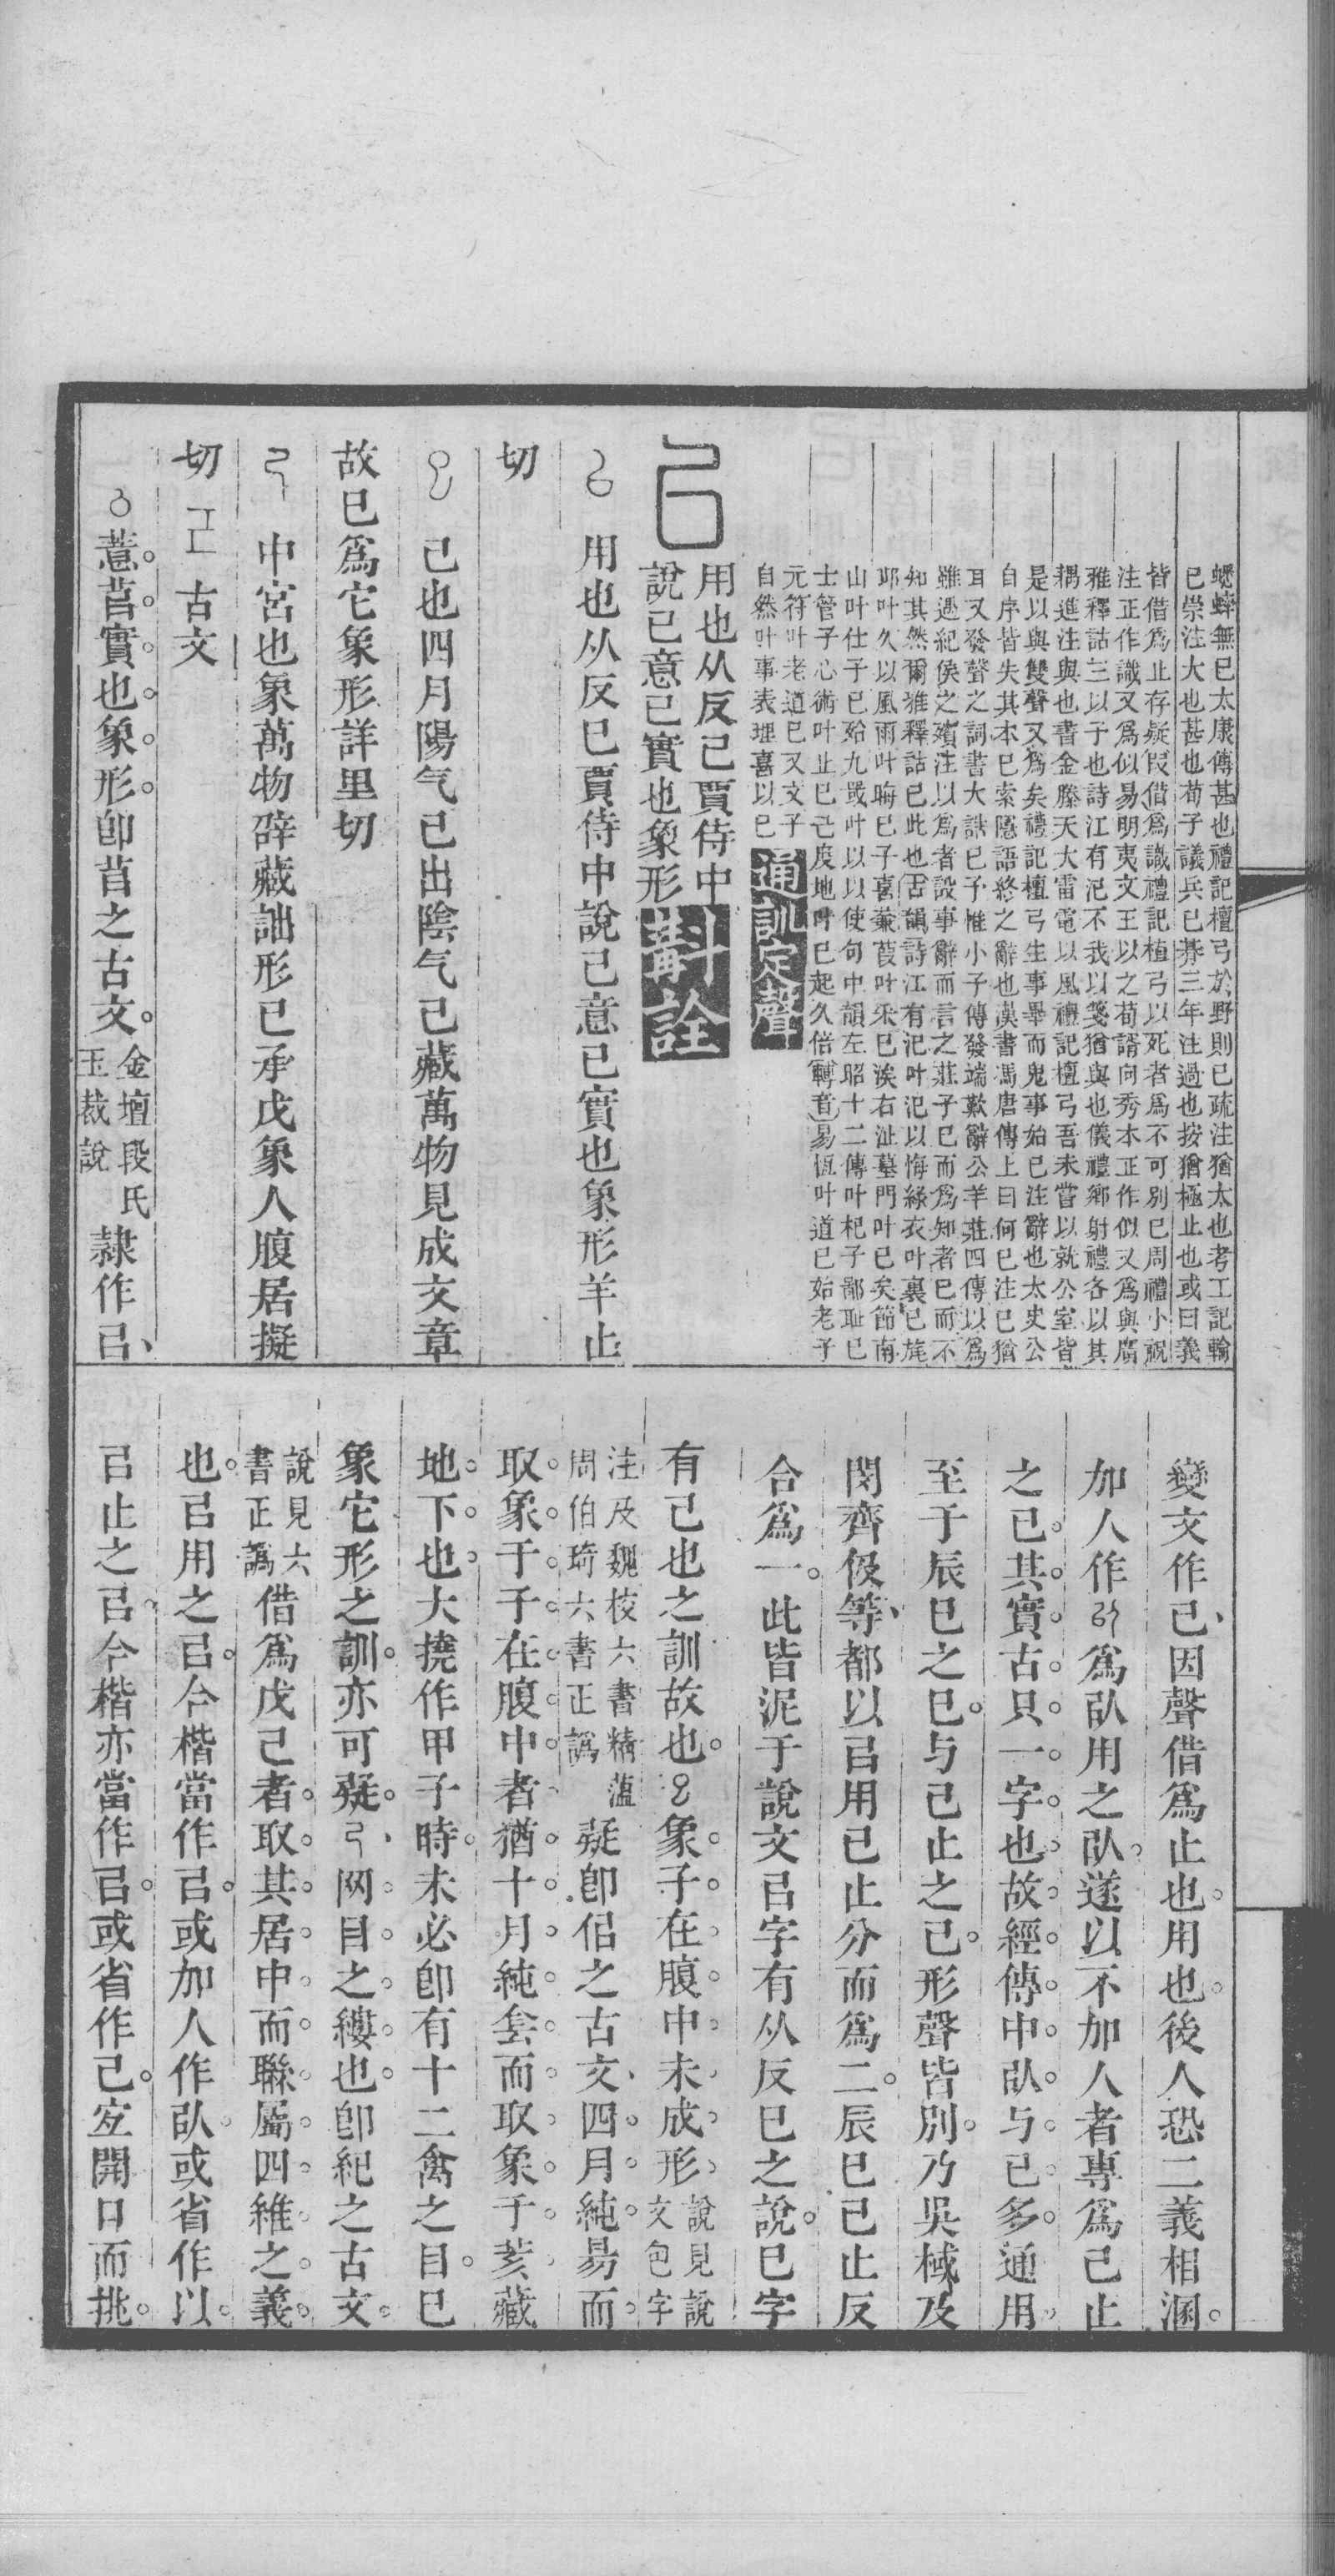 蟋蟀無已太康傳甚也禮記檀弓於野則已疏注猶太也考工記輪
已崇注大也甚也荀子議兵已朞三年注過也按猶極止也或曰義
皆借爲止存疑叚借爲識禮記檀弓以死者爲不可別已周禮小祝
注正作識又爲似易明夷文王以之荀諝向秀本正作似又爲與廣
雅釋詁三以子也詩江有汜不我以箋猶與也儀禮鄉射禮各以其
耦進注與也書金縢天大雷電以風禮記檀弓吾未嘗以就公室皆
是以與雙聲又爲矣禮記檀弓生事畢而鬼事始已注辭也太史公
自序皆失其本已索隱語終之辭也漢書馮唐傳上曰何已注已猶
耳又發聲之詞書大誥已予惟小子傳發端歎辭公羊莊四傳以爲
雖遇紀侯之殯注以爲者設事辭而言之莊子已而爲知者已而不
知其然爾雅釋詁已此也古韻詩江有汜叶汜以悔綠衣叶裏已旄
邱叶久以風雨叶晦已子喜蒹葭叶采已涘右沚墓門叶已矣節南
山叶仕子已殆九罭叶以以使句中韻左昭十二傳叶杞子鄙耻已
士管子心術叶止已己度地叶已起久倍轉音易恆叶道已始老子
元符叶老道已又文子
自然叶事表理喜以已通訓定聲
㠯用也从反已賈侍中
說已意已實也象形斠詮
用也从反巳賈侍中說己意已實也象形羊止
切
已也四月陽气已出陰气已藏萬物見成文章
故巳爲它象形詳里切
中宮也象萬物辟藏詘形已承戊象人腹居擬
切 古文
薏苢實也象形卽苢之古文金壇段氏
玉裁說隷作㠯
變文作已因聲借爲止也用也後人恐二義相溷
加人作 爲㕥用之㕥遂以不加人者專爲已止
之已其實古只一字也故經傳中㕥与已多通用
至于辰巳之巳与己止之已形聲皆別乃吳棫及
閔齊伋等都以㠯用已止分而爲二辰巳已止反
合爲一此皆泥于說文㠯字有从反巳之說巳字
有已也之訓故也 象子在腹中未成形說見說
文包字
注及魏校六書精薀
周伯琦六書正譌疑卽佀之古文四月純昜而
取象于子在腹中者猶十月純侌而取象于荄藏
地下也大撓作甲子時未必卽有十二禽之目巳
象它形之訓亦可疑 网目之縷也卽紀之古文
說見六
書正譌借爲戊己者取其居中而聯屬四維之義
也㠯用之㠯今楷當作㠯或加人作㕥或省作以
㠯止之㠯今楷亦當作㠯或省作已宐開口而挑